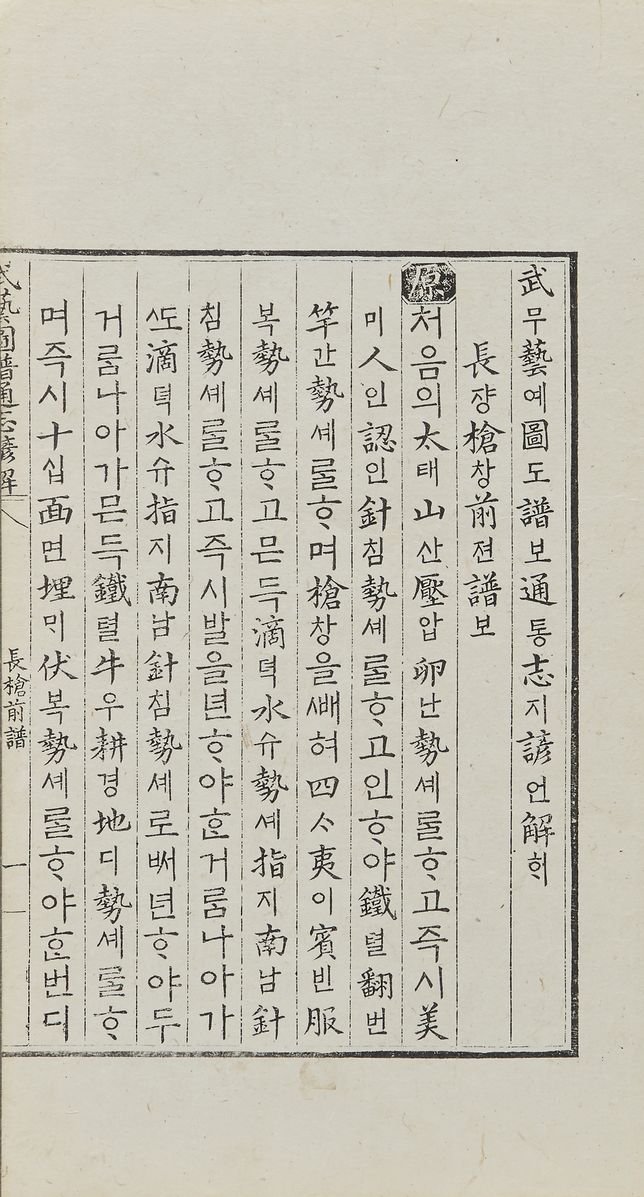 武무藝예圖도譜보通통志지諺언解ᄒᆡ
長쟝槍창前젼譜보
原처음의太태山산壓압卵난勢셰ᄅᆞᆯᄒᆞ고즉시美
미人인認인針침勢셰ᄅᆞᆯᄒᆞ고인ᄒᆞ야鐵텰翻번
竿간勢셰ᄅᆞᆯᄒᆞ며槍창을ᄲᅢ혀四ᄉᆞ夷이賓빈服
복勢셰ᄅᆞᆯᄒᆞ고믄득滴뎍水슈勢셰指지南남針
침勢셰ᄅᆞᆯᄒᆞ고즉시발을년ᄒᆞ야ᄒᆞᆫ거ᄅᆞᆷ나아가
ᄯᅩ滴뎍水슈指지南남針침勢셰로ᄡᅥ년ᄒᆞ야두
거ᄅᆞᆷ나아가믄득鐵텰牛우耕경地디勢셰ᄅᆞᆯᄒᆞ
며즉시十십面면埋ᄆᆡ伏복勢셰ᄅᆞᆯᄒᆞ야ᄒᆞᆫ번디
武藝圖譜通志諺解
長槍前譜
一